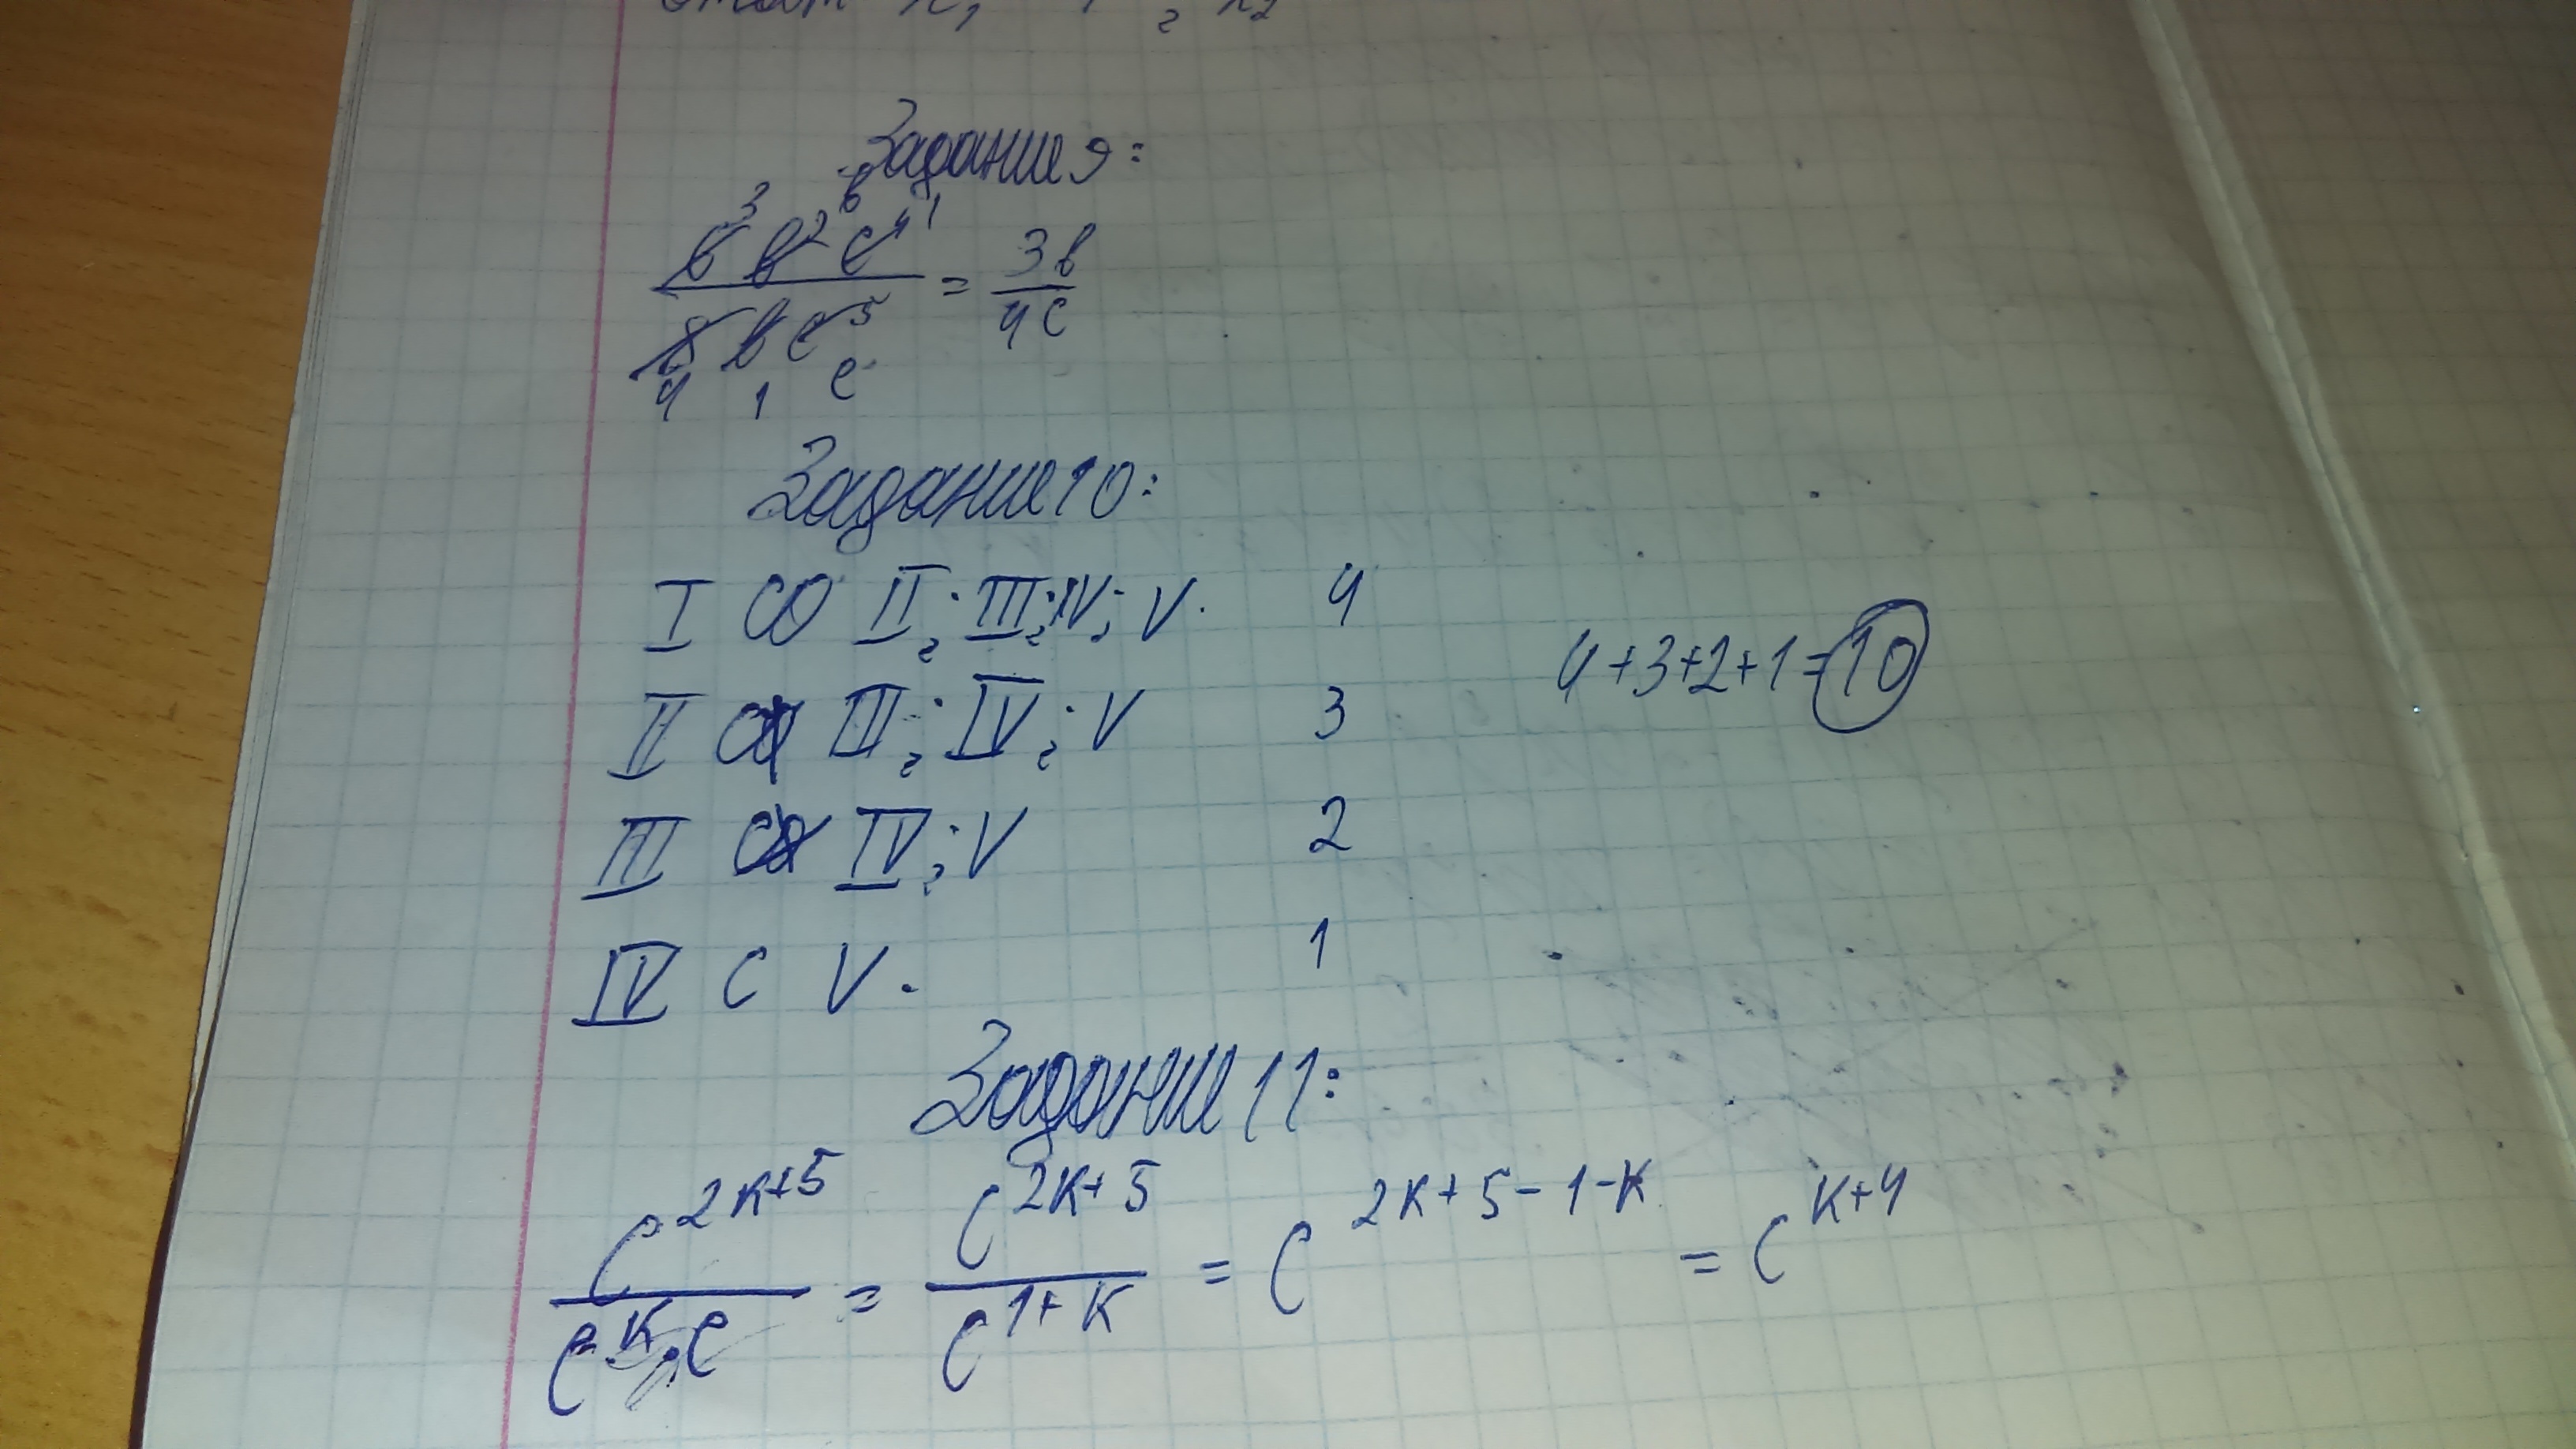 Задания 9:
6 b² c⁴ / 8 b c⁵ = 3b / 4c
Задание 10:
I со II; III; IV; V. 4
4+3+2+1=10
II с III; IV; V 3
III с IV; V 2
IV с V. 1
Задание 11:
c^(2k+5) / c^k · c = c^(2k+5) / c^(1+k) = c^(2k+5-1-k) = c^(k+4)